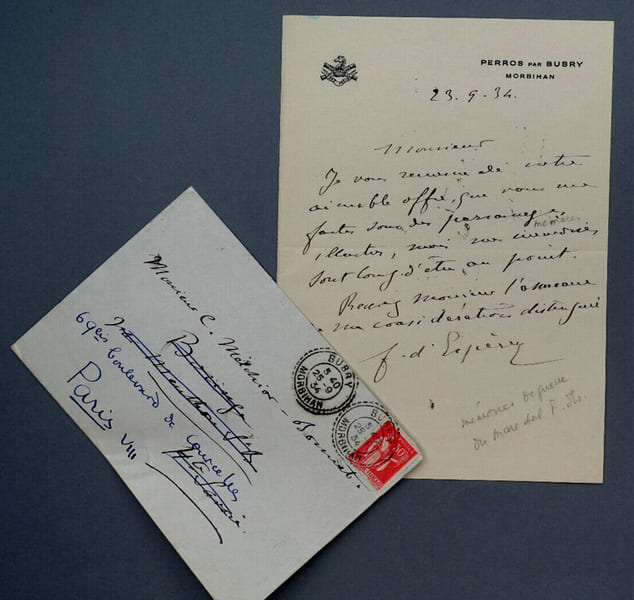 PERROS PAR BUBRY
MORBIHAN
23.9.34.
Monsieur
Je vous remercie de votre
aimable offre, que vous me
faites sous des
mémoires
illustres, mais mes mémoires
sont loin d'être au point.
Recevez Monsieur l'assurance
ma considération distinguée
f. d'Espèrey
mémoires de guerre
du marechal F. d'Es.
Monsieur C. Melchior-Bonnet.
69bis boulevard de Courcelles
Paris VIII
BUBRY
5 40
25-9
34
MORBIHAN
BUBRY
5
25
34
MORBIHAN
50c